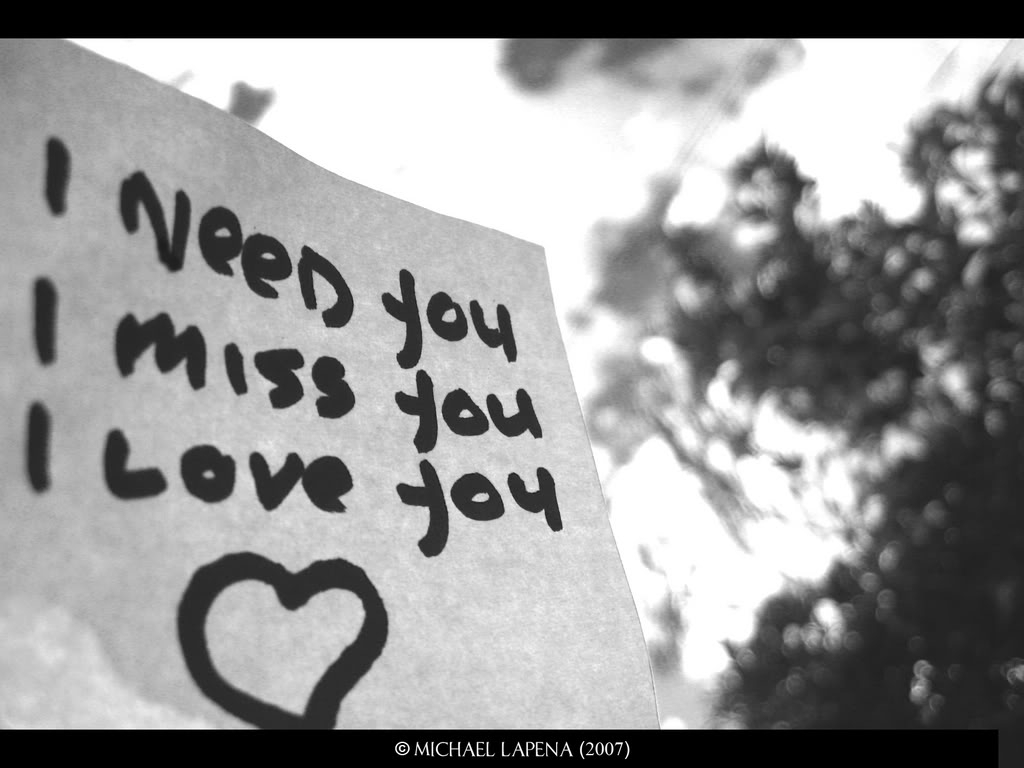 I Need you
I miss you
I Love you
© MICHAEL LAPENA (2007)